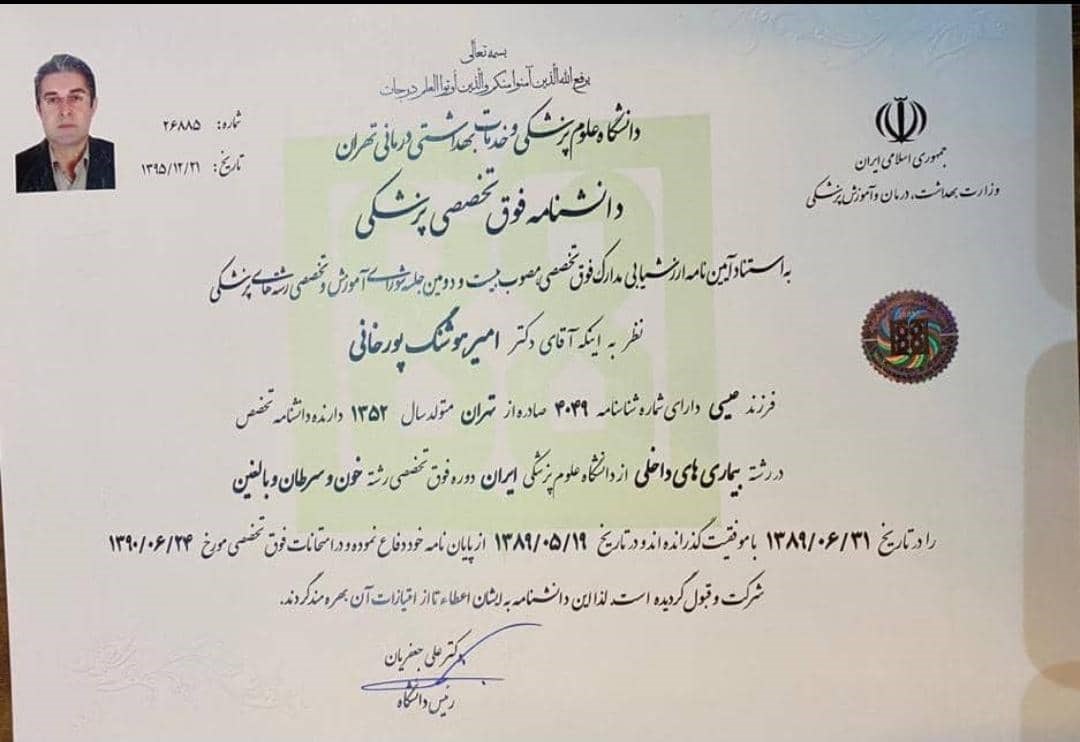 بسمه تعالی
یرفع الله الذین آمنوا منکم والذین أوتوا العلم درجات
جمهوری اسلامی ایران
وزارت بهداشت، درمان و آموزش پزشکی
شماره: ۲۶۸۸۵
تاریخ: ۱۳۹۵/۱۲/۲۱
دانشگاه علوم پزشکی و خدمات بهداشتی درمانی تهران
دانشنامه فوق تخصصی پزشکی
به استناد آیین نامه ارزشیابی مدارک فوق تخصصی مصوب بیست و دومین جلسه شورای آموزش و تخصصی رشته های پزشکی
نظر به اینکه آقای دکتر امیرهوشنگ پورخانی
فرزند عیسی دارای شماره شناسنامه ۴۰۴۹ صادره از تهران متولد سال ۱۳۵۲ دارنده دانشنامه تخصص
در رشته بیماری های داخلی از دانشگاه علوم پزشکی ایران دوره فوق تخصصی رشته خون و سرطان و بالغین
را در تاریخ ۱۳۸۹/۰۶/۳۱ با موفقیت گذرانده اند و در تاریخ ۱۳۸۹/۰۵/۱۹ از پایان نامه خود دفاع نموده و در امتحانات فوق تخصصی مورخ ۱۳۹۰/۰۶/۲۴
شرکت و قبول گردیده است. لذا این دانشنامه به ایشان اعطاء تا از امتیازات آن بهره مند گردند.
دکتر علی جعفریان
رئیس دانشگاه